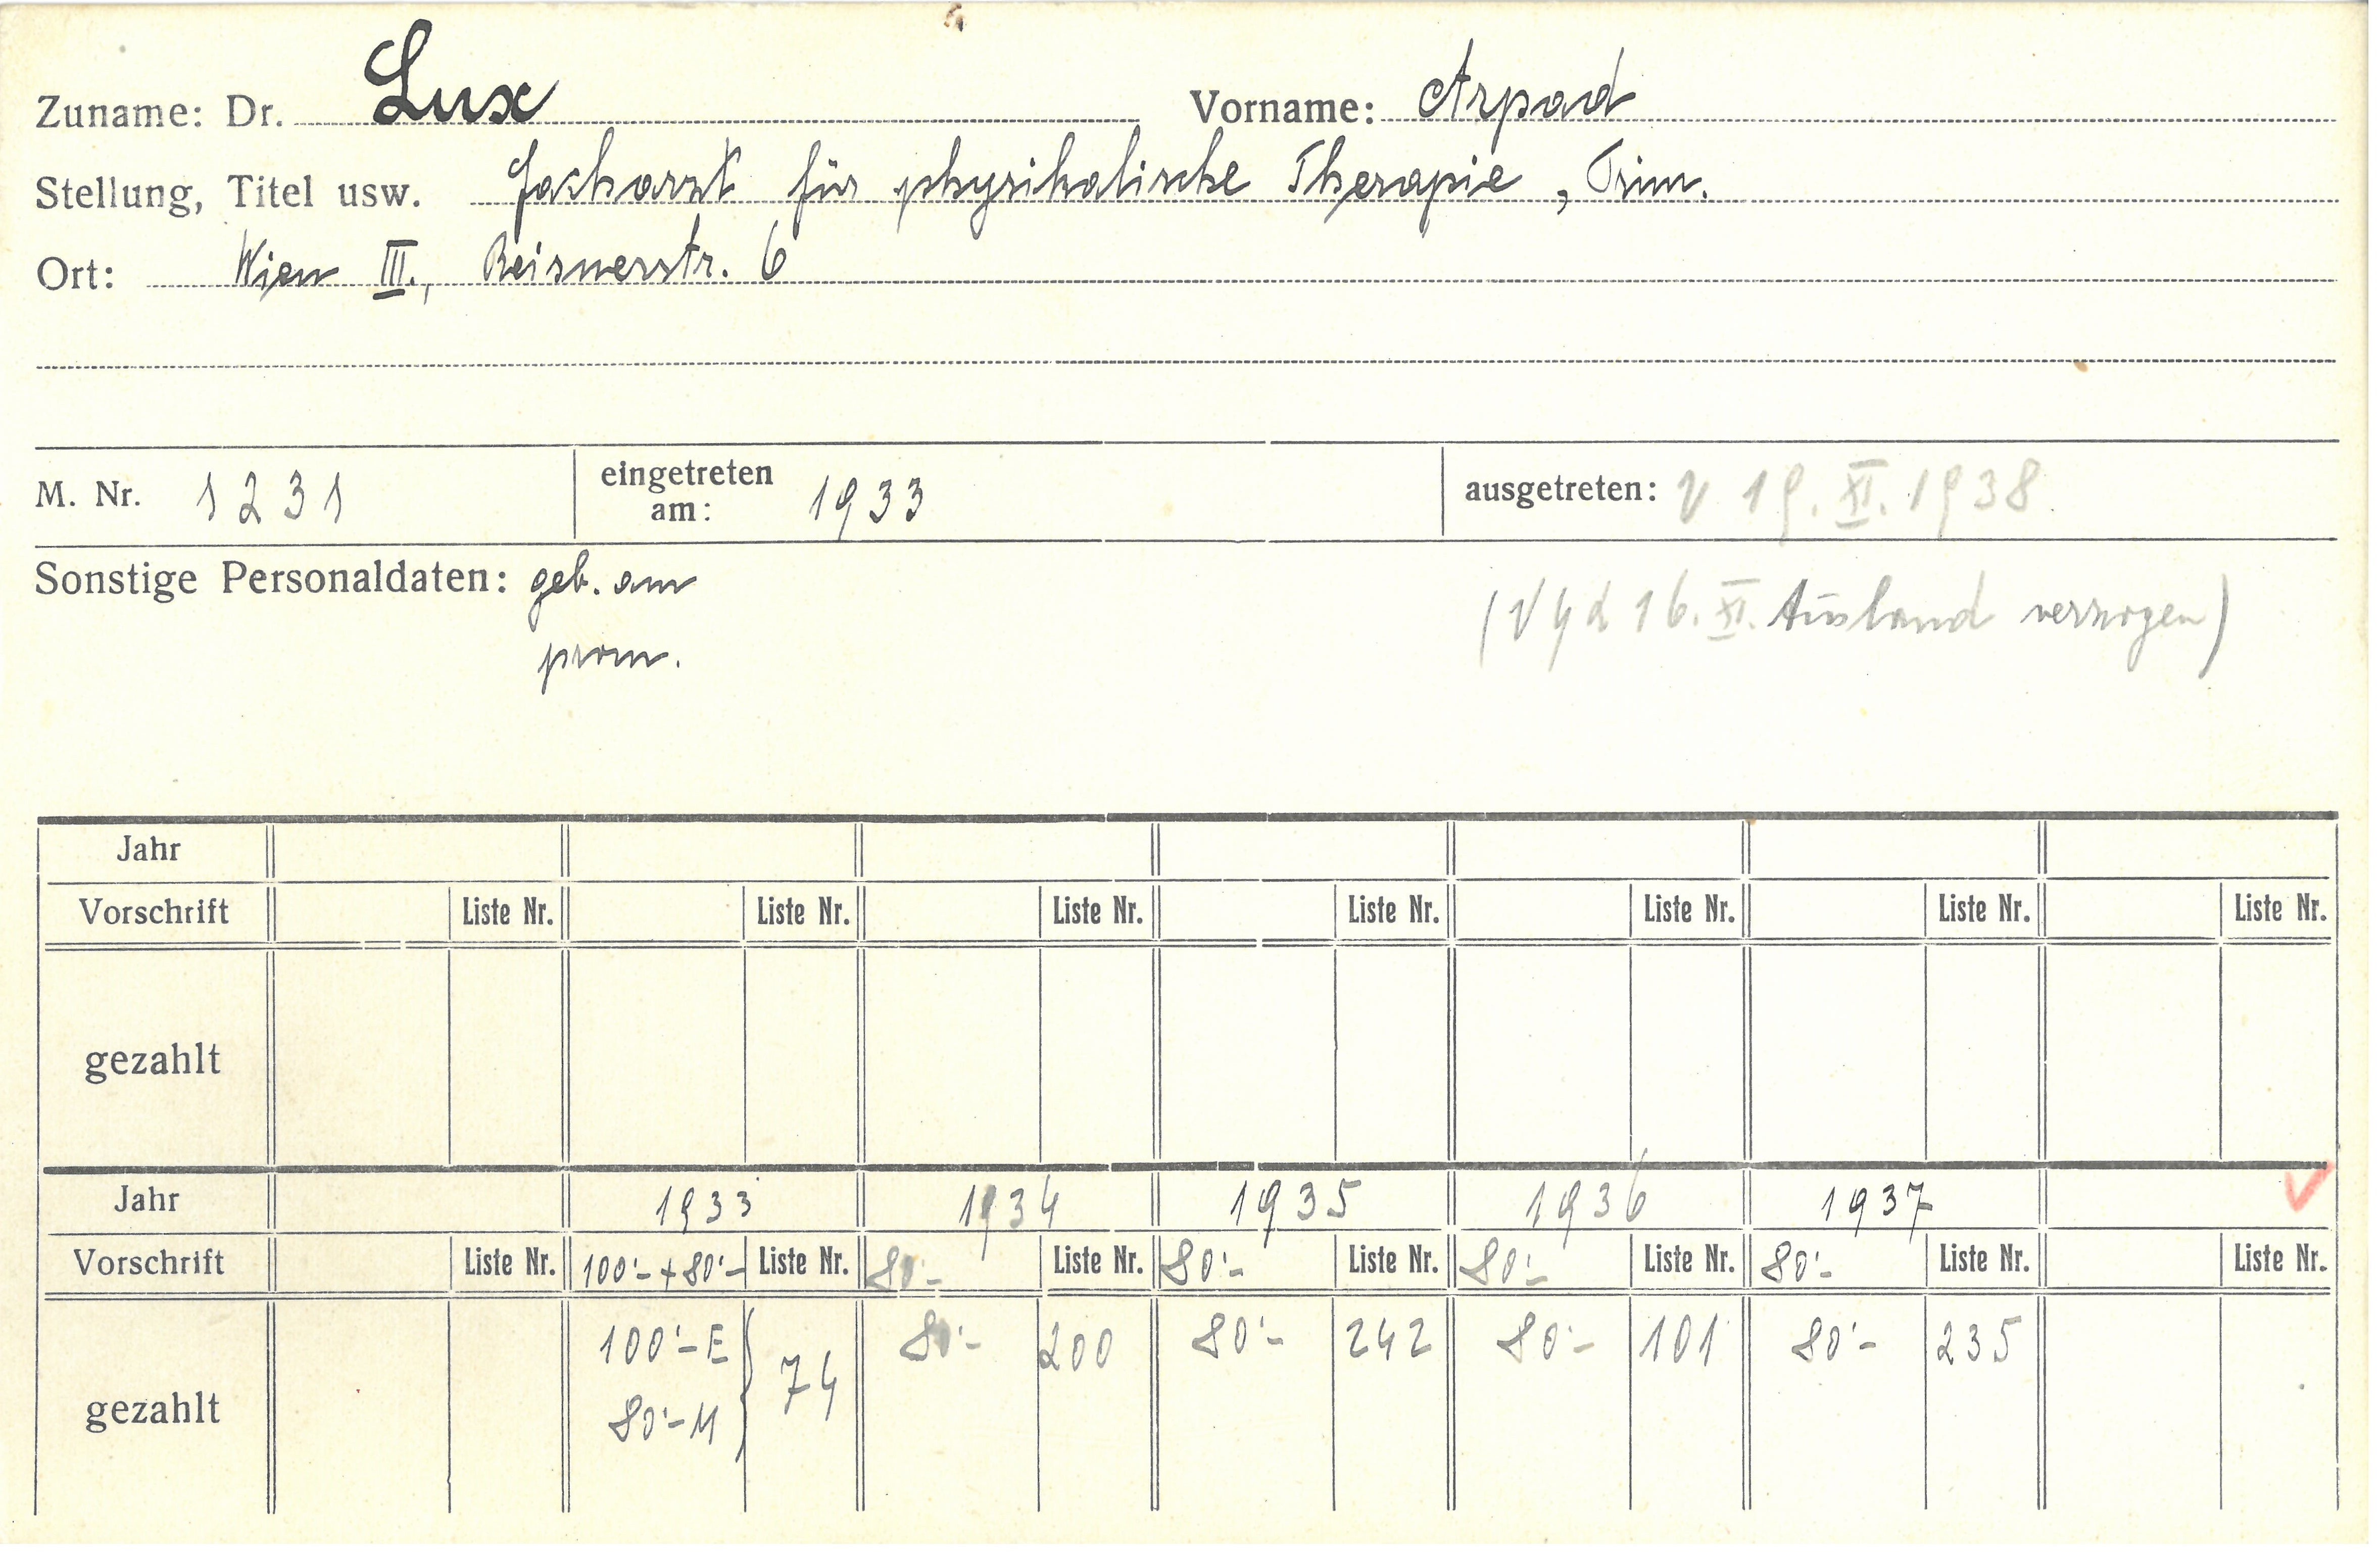 Zuname: Dr. Lux Vorname: Arpad
Stellung, Titel usw. Facharzt für physikalische Therapie, Prim.
Ort: Wien III., Reisnerstr. 6
M. Nr. 1231 eingetreten am: 1933 ausgetreten: V 19. XI. 1938
Sonstige Personaldaten: geb. am
(V 16. XI. Ausland verzogen)
prom.
Jahr
Vorschrift Liste Nr. Liste Nr. Liste Nr. Liste Nr. Liste Nr. Liste Nr. Liste Nr.
gezahlt
Jahr 1933 1934 1935 1936 1937
Vorschrift Liste Nr. 100'- + 80'- Liste Nr. 80'- Liste Nr. 80'- Liste Nr. 80'- Liste Nr. 80'- Liste Nr. Liste Nr.
gezahlt 100'- E 80'- M } 74 80'- 200 80'- 242 80'- 101 80'- 235